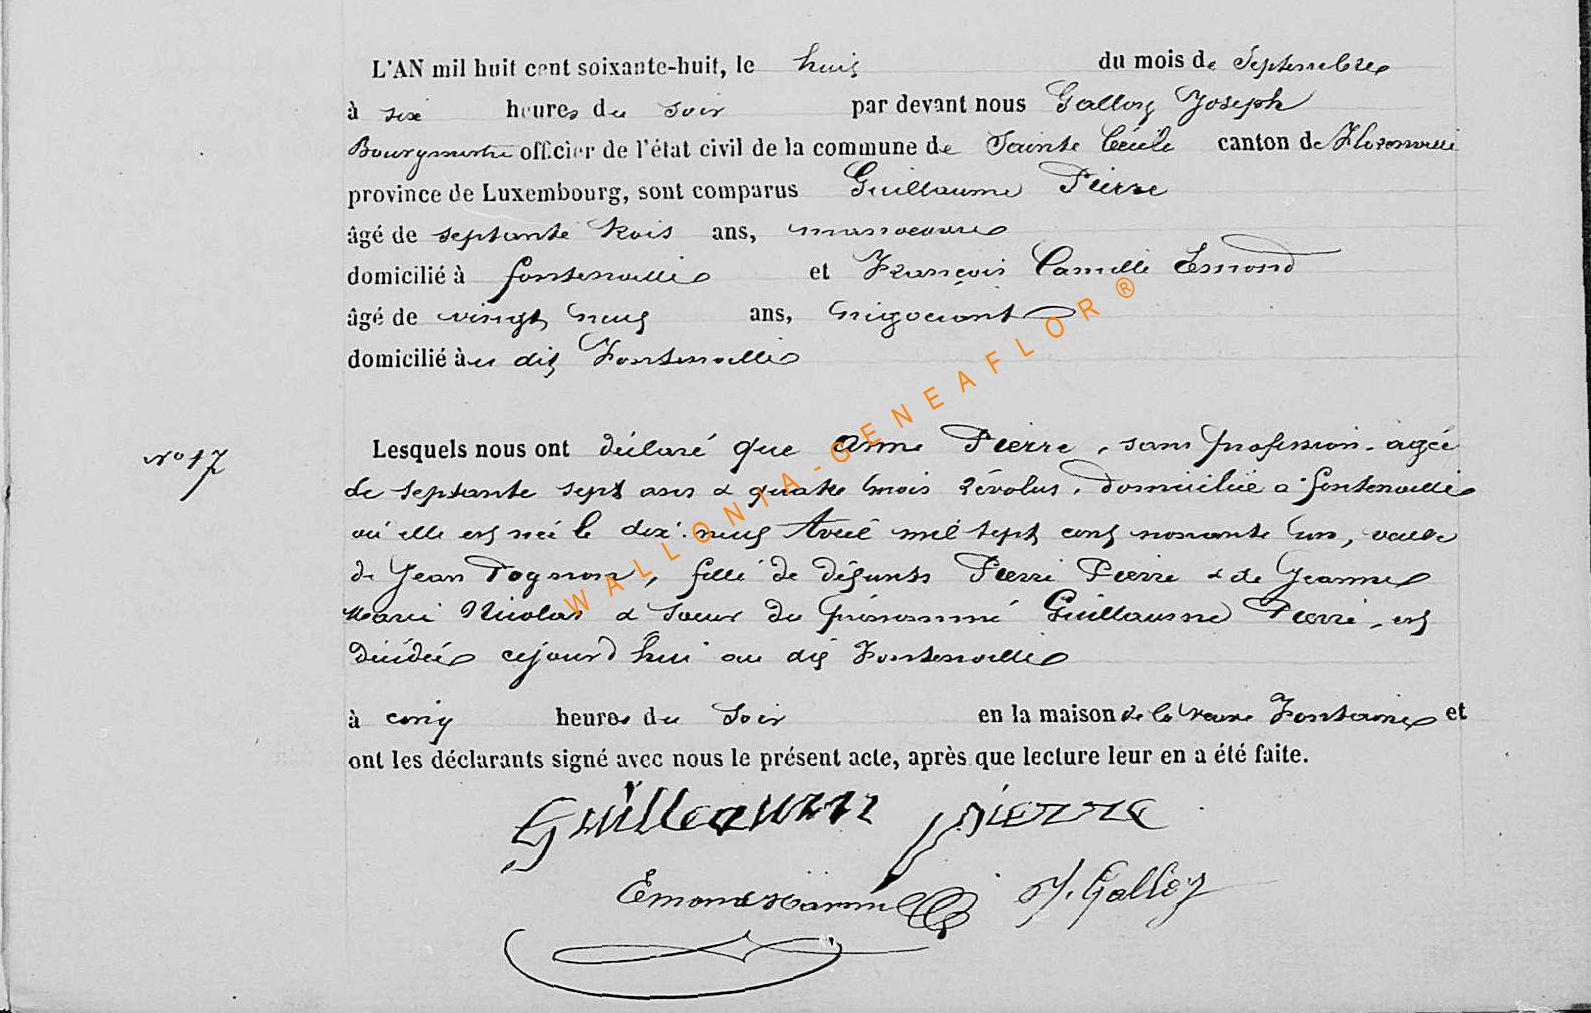 L'AN mil huit cent soixante-huit, le huit du mois de Septembre
à six heures du soir par devant nous Galloy Joseph
Bourgmestre officier de l'état civil de la commune de Sainte Cécile canton de Florenville
province de Luxembourg, sont comparus Guillaume Pierre
âgé de septante trois ans, manoeuvre
domicilié à fontenoille et François Camille Emond
âgé de vingt neuf ans, négociant
domicilié àu dit Fontenoille
N° 17
Lesquels nous ont déclaré que Anne Pierre, sans profession, agée
de septante sept ans & quatre mois révolus, domiciliée a fontenoille
où elle est née le dix-neuf Avril mil sept cent nonante un, veuve
de Jean Pognon, fille de défunts Pierre Pierre & de Jeanne
Marie Nicolas & soeur du prénommé Guillaume Pierre, est
décédée cejourd'hui au dit Fontenoille
à cinq heures du soir en la maison de la veuve Fontaine et
ont les déclarants signé avec nous le présent acte, après que lecture leur en a été faite.
Guilleaume pierre
Emond J. Galloy
WALLONIA-GENEAFLOR ®